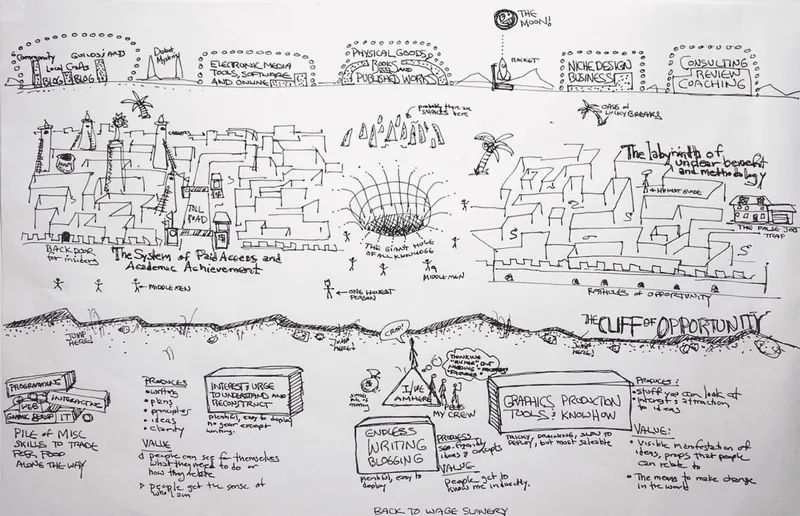 THE MOON!
Community
GUILDS AND
Local Crafts
BLOG
BLOG
Mystery
ELECTRONIC MEDIA
TOOLS, SOFTWARE
AND ONLINE
PHYSICAL GOODS
BOOKS
AND
PUBLISHED WORKS
ROCKET
NICHE DESIGN
BUSINESS
CONSULTING
REVIEW
COACHING
probably there are
SNIPERS here
OASIS OF
LUCKY BREAKS
The labyrinth of
unclear benefit
and methodology
← HONEST GUIDE
TOLL
ROAD
THE FALSE JOB
TRAP
BACK DOOR
for insiders
The System of Paid Access and
Academic Achievement
THE GIANT HOLE
OF ALL KNOWLEDGE
MIDDLEMEN
← MIDDLEMEN
← ONE HONEST
PERSON
RATHOLES OF OPPORTUNITY
THE CLIFF OF OPPORTUNITY
JUMP
HERE!
JUMP
HERE!
JUMP
HERE!
CRAP!
I / WE
AM HERE
MY CREW
PROGRAMMING
WEB
INTERACTIVE
GRAPHIC DESIGN
IT
PILE OF MISC
SKILLS TO TRADE
FOR FOOD
ALONG THE WAY
PRODUCES
• writing
• plans
• principles
• ideas
• clarity
VALUE
people can see for themselves
what they need to do or
how they relate
people get the sense of
who I am
INTEREST & URGE
TO UNDERSTAND AND
RECONSTRUCT
plentiful, easy to deploy
no gear except
writing.
ENDLESS
WRITING
BLOGGING
plentiful, easy to
deploy
PRODUCES
ideas & concepts
VALUE
People get to
know me indirectly.
GRAPHICS PRODUCTION
TOOLS & KNOWHOW
TRICKY, DRAINING, SLOW TO
DEPLOY, but most saleable
PRODUCES:
• stuff you can look at
• interest attraction
to ideas
VALUE:
• Visible manifestation of
ideas, props that people
can relate to
• The means to make change
in the world
BACK TO WAGE SLAVERY